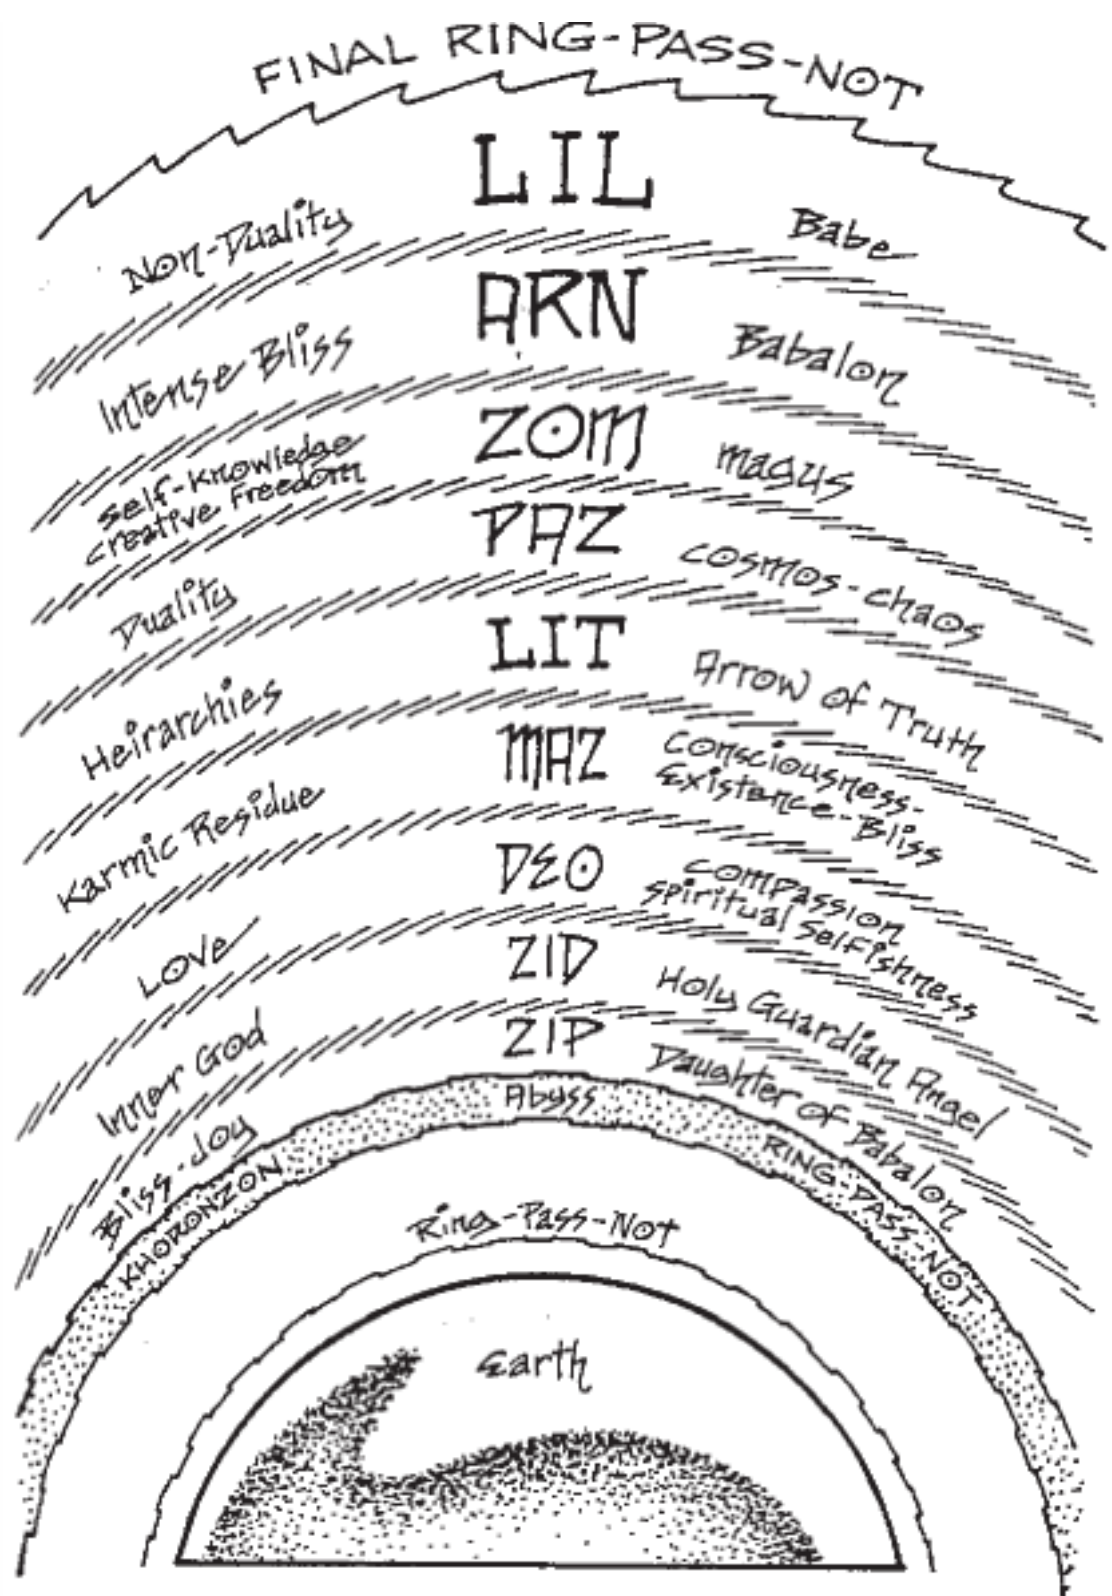 FINAL RING-PASS-NOT
LIL
Non-Duality
Babe
ARN
Intense Bliss
Babalon
ZOM
Self-Knowledge
Creative Freedom
Magus
PAZ
Duality
Cosmos-Chaos
LIT
Heirarchies
Arrow of Truth
MAZ
Karmic Residue
Consciousness-
Existence-Bliss
DEO
Love
Compassion
Spiritual Selfishness
ZID
Inner God
Holy Guardian Angel
ZIP
Bliss-Joy
Daughter of Babalon
Abyss
KHORONZON
RING-PASS-NOT
Ring-Pass-Not
Earth